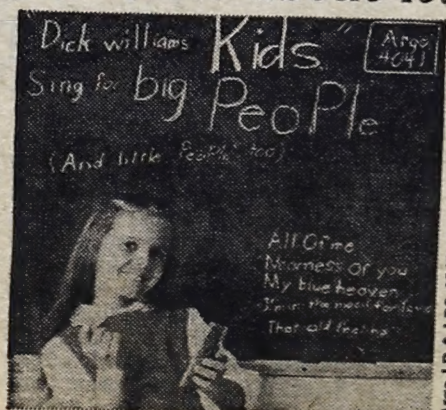 Dick williams Kids
Sing for big PeoPle
(And little PeoPle too)
Argo
4041
All Of me
Nearness Of you
My blue heaven
I'm in the mood for love
That old feeling